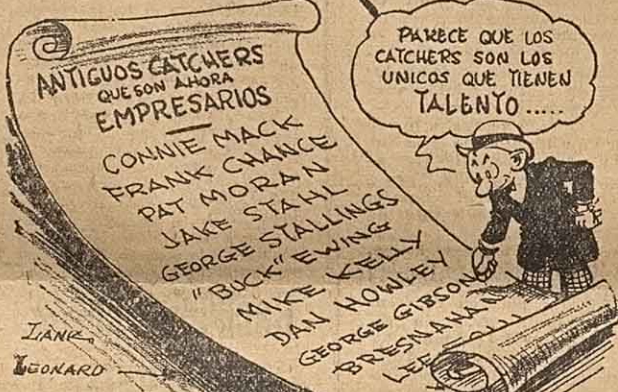 ANTIGUOS CATCHERS
QUE SON AHORA
EMPRESARIOS
CONNIE MACK
FRANK CHANCE
PAT MORAN
JAKE STAHL
GEORGE STALLINGS
"BUCK" EWING
MIKE KELLY
DAN HOWLEY
GEORGE GIBSON
BRESNAHAN
LEE
PARECE QUE LOS
CATCHERS SON LOS
UNICOS QUE TIENEN
TALENTO.....
LANK
LEONARD